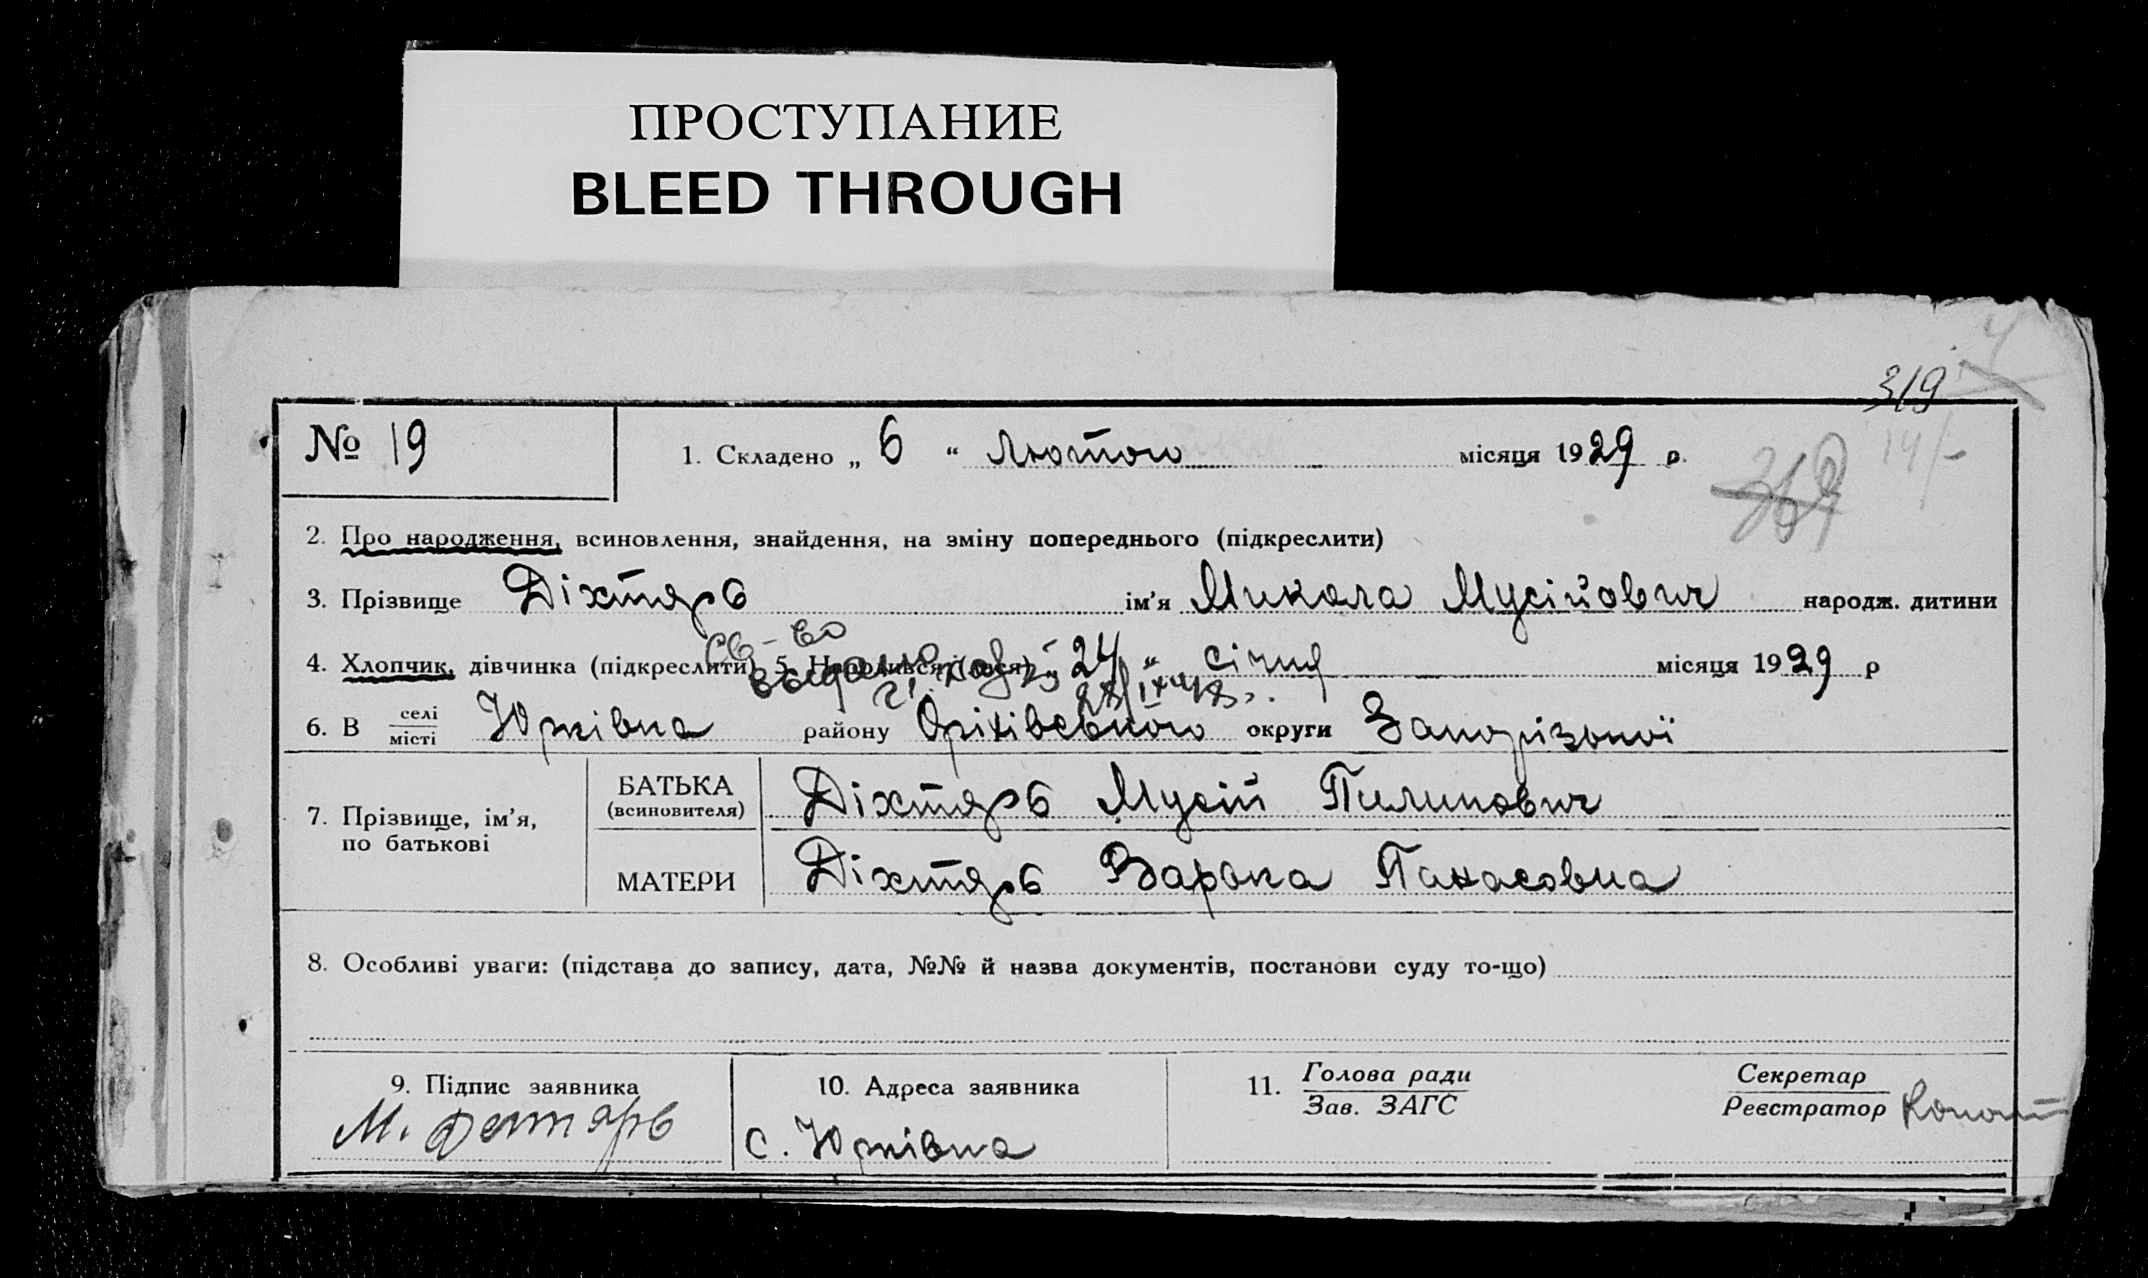 ПРОСТУПАНИЕ
BLEED THROUGH
319
№ 19 1. Складено „ 6 “ Лютого місяця 1929 р.
14/-
2. Про народження, всиновлення, знайдення, на зміну попереднього (підкреслити)
3. Прізвище Діхтярь ім’я Микола Мусійович народж. дитини
Св-во
4. Хлопчик, дівчинка (підкреслити) 5. Народився (лася) „ 24 “ січня місяця 1929 р
6. В селі місті Юрківка району Оріхівського округи Запорізької
7. Прізвище, ім’я, по батькові
БАТЬКА (всиновителя) Діхтярь Мусій Пилипович
МАТЕРИ Діхтярь Варька Панасовна
8. Особливі уваги: (підстава до запису, дата, №№ й назва документів, постанови суду то-що)
9. Підпис заявника 10. Адреса заявника 11. Голова ради Зав. ЗАГС Секретар Реєстратор
М. Дехтярь с. Юрківка